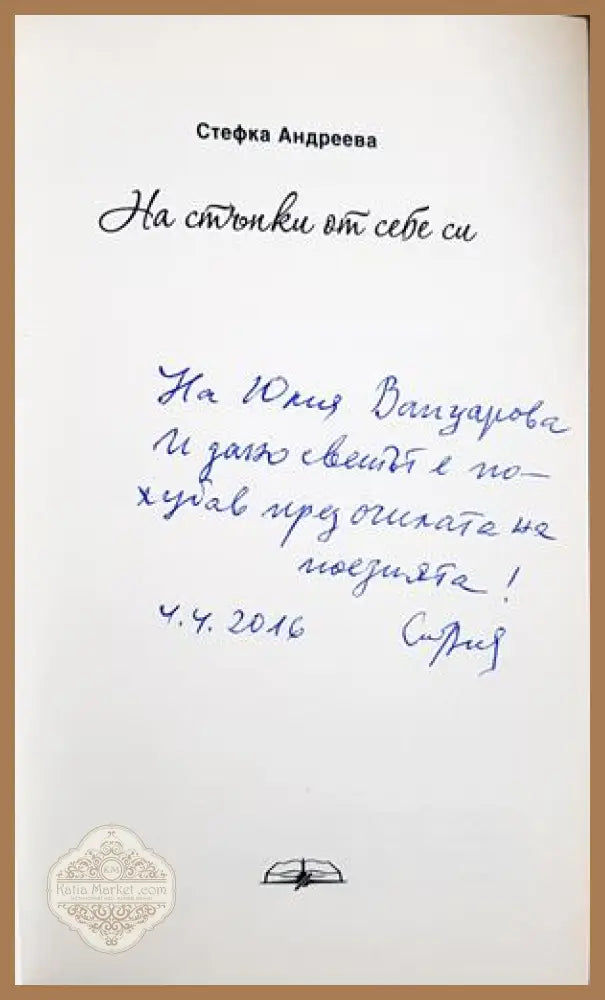 Стефка Андреева
На стъпки от себе си
На Юлия Вапцарова
И дано светът е по-
хубав през очилата на
поезията!
4.4.2016
KM
Katia Market .com